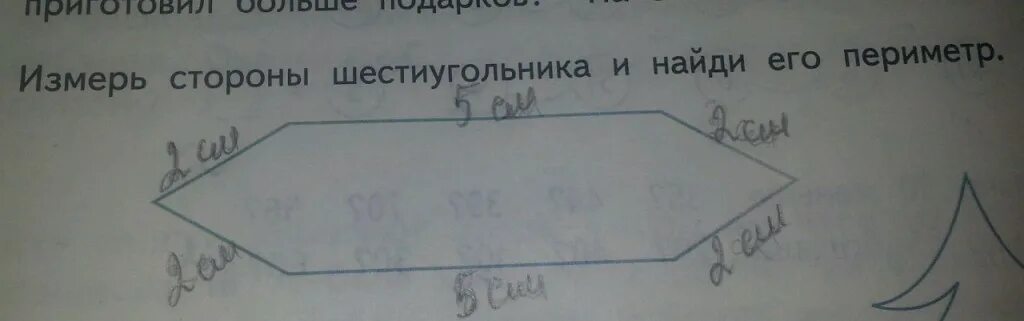 приготовил больше подарков?
Измерь стороны шестиугольника и найди его периметр.
5 см
2 см
2 см
2 см
2 см
5 см